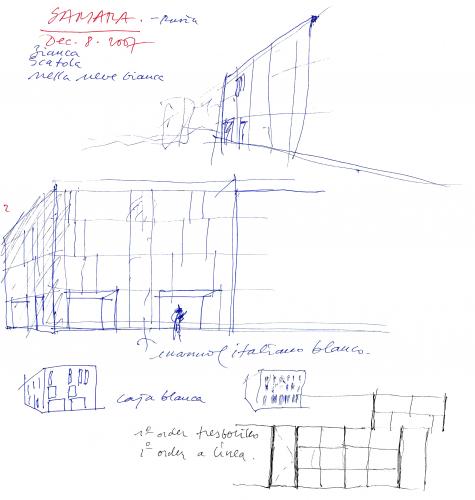 SAMARA. - Russia
Dec. 8. 2007
Bianca
Scatola
nella neve bianca
2
marmol italiano blanco.
caja blanca
1º order
1º order a linea.